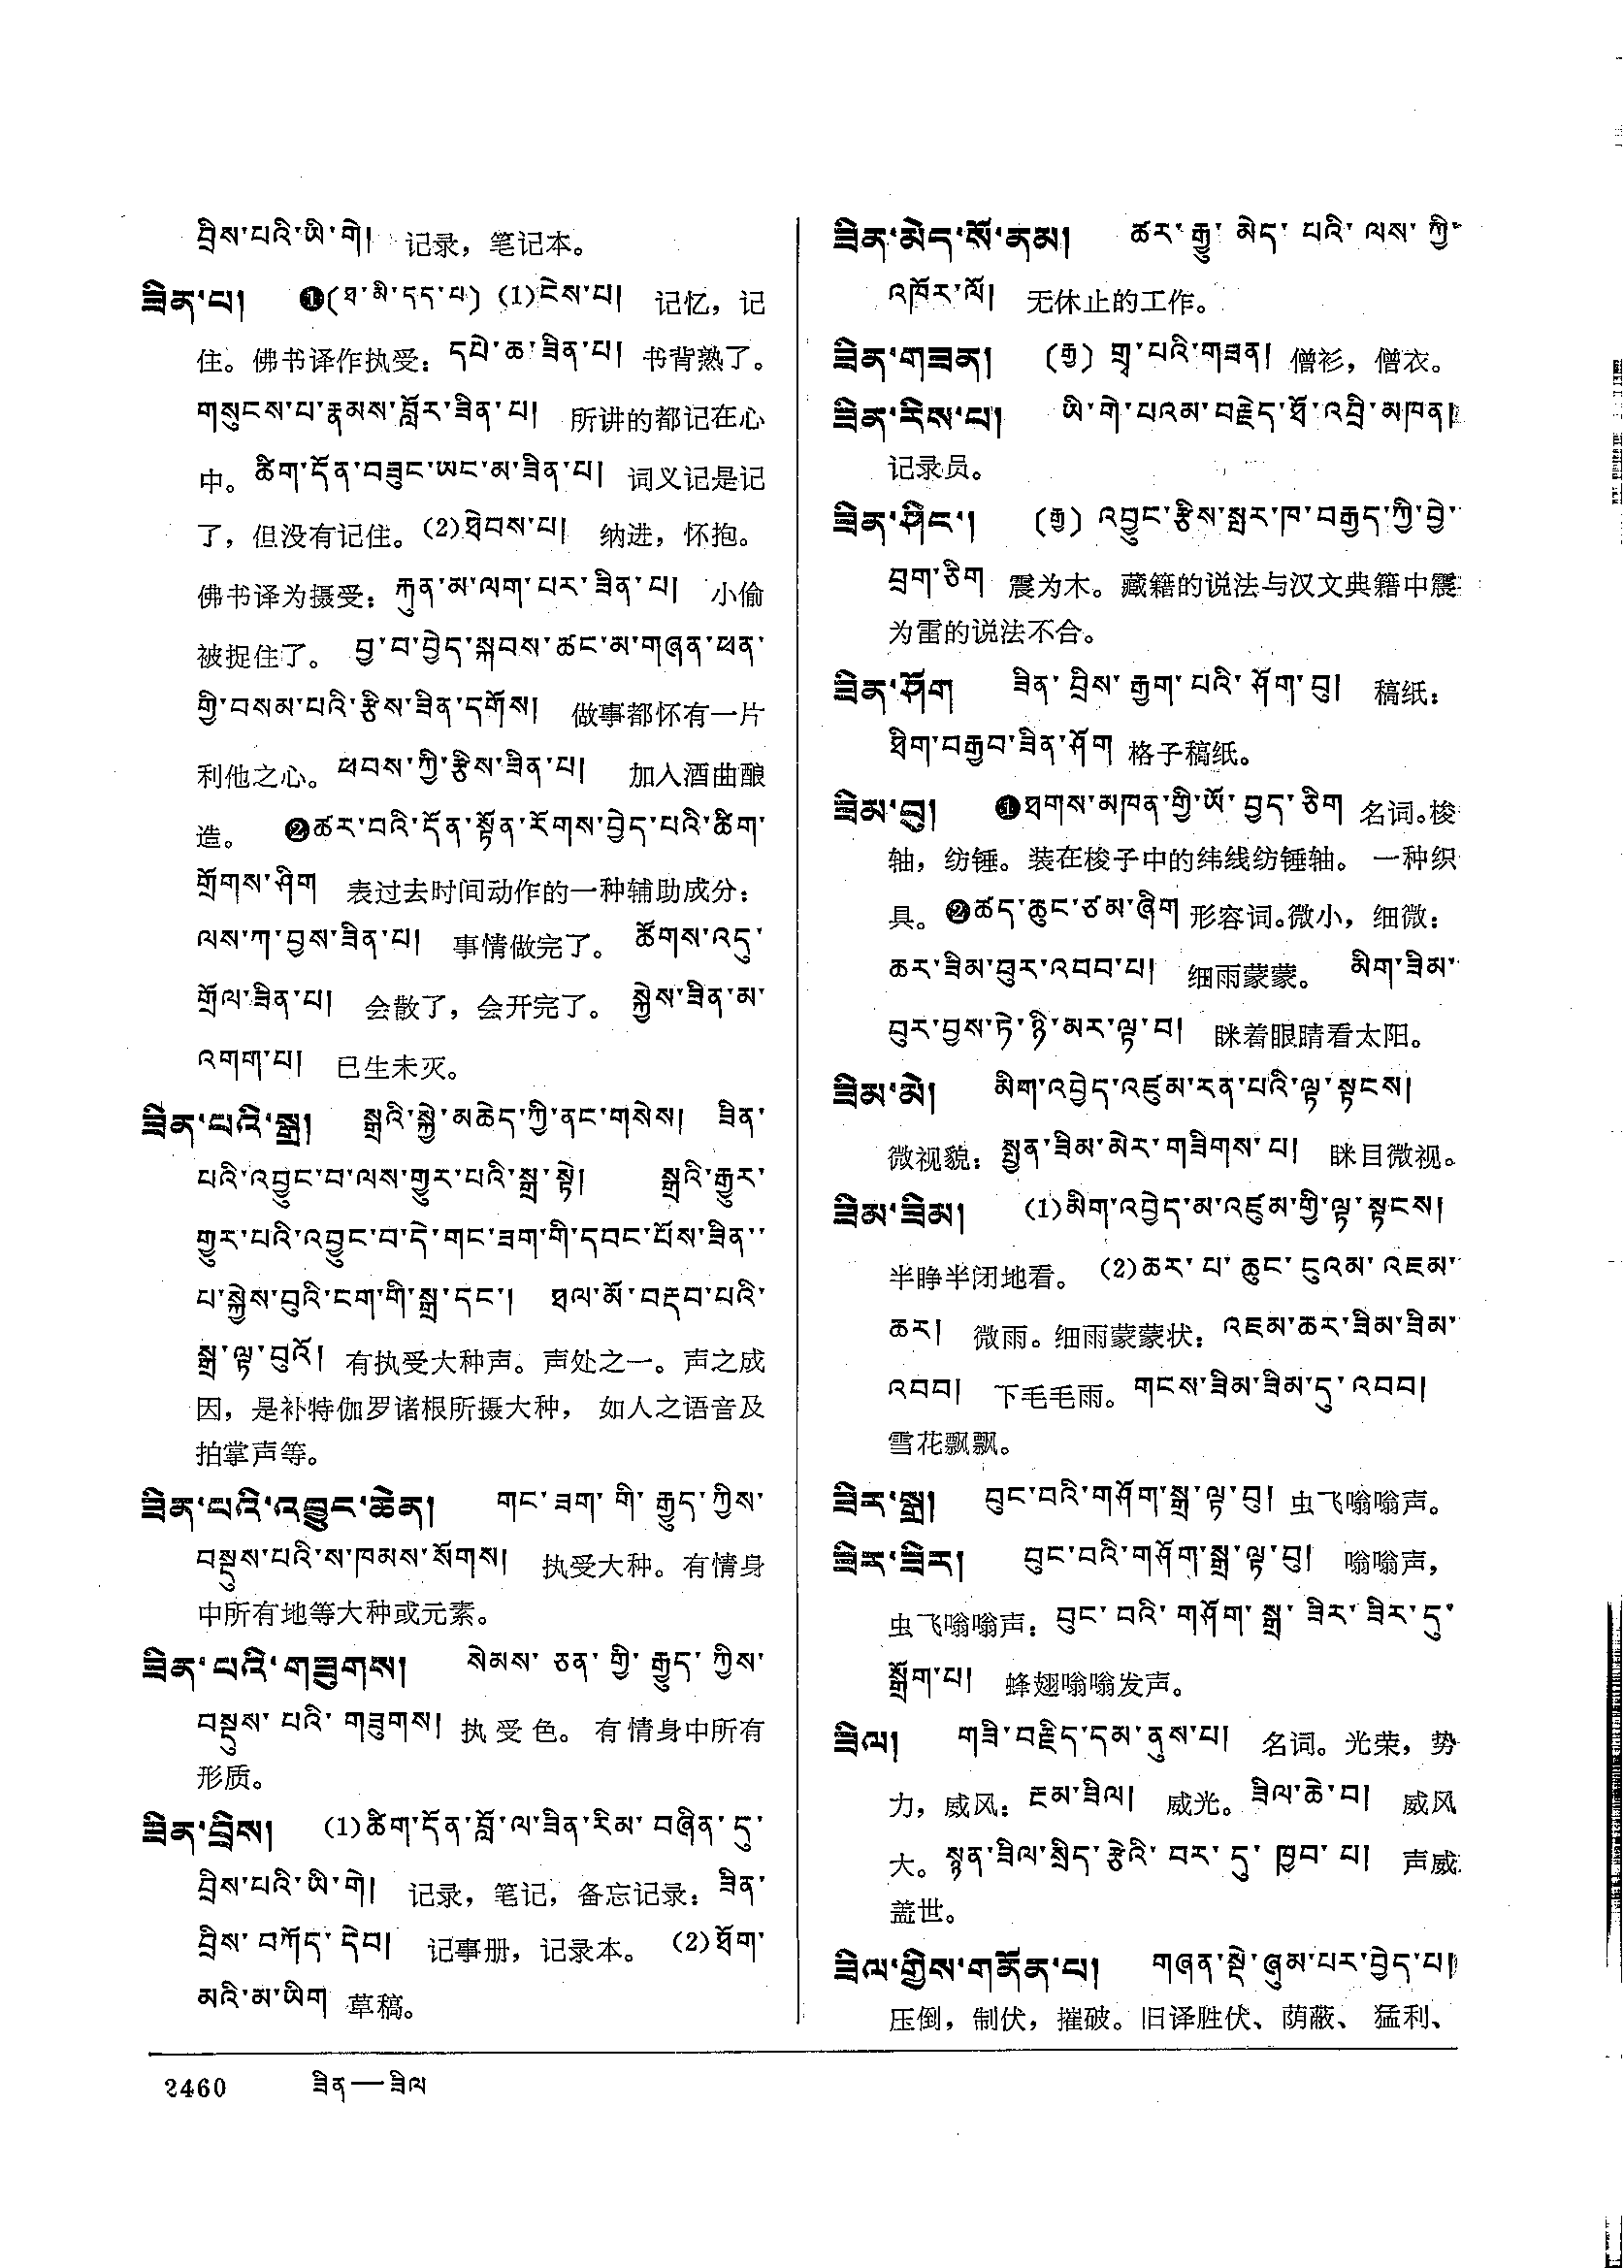 བྲིས་པའི་ཡི་གེ། 记录，笔记本。
ཟིན་པ། ❶(ཐ་མི་དད་པ) (1)ངེས་པ། 记忆，记
住。佛书译作执受：དཔེ་ཆ་ཟིན་པ། 书背熟了。
གསུངས་པ་རྣམས་བློར་ཟིན་པ། 所讲的都记在心
中。ཚིག་དོན་བཟུང་ཡང་མ་ཟིན་པ། 词义记是记
了，但没有记住。(2)ཐེབས་པ། 纳进，怀抱。
佛书译为摄受：རྐུན་མ་ལག་པར་ཟིན་པ། 小偷
被捉住了。 བྱ་བ་བྱེད་སྐབས་ཚང་མ་གཞན་ཕན་
གྱི་བསམ་པའི་རྩིས་ཟིན་དགོས། 做事都怀有一片
利他之心。ཕབས་ཀྱི་རྩིས་ཟིན་པ། 加入酒曲酿
造。 ❷ཚར་བའི་དོན་སྟོན་རོགས་བྱེད་པའི་ཚིག་
གྲོགས་ཤིག 表过去时间动作的一种辅助成分：
ལས་ཀ་བྱས་ཟིན་པ། 事情做完了。 ཚོགས་འདུ་
གྲོལ་ཟིན་པ། 会散了，会开完了。 སྐྱེས་ཟིན་མ་
འགག་པ། 已生未灭。
ཟིན་པའི་སྒྲ། སྒྲའི་སྐྱེ་མཆེད་ཀྱི་ནང་གསེས། ཟིན་
པའི་འབྱུང་བ་ལས་གྱུར་པའི་སྒྲ་སྟེ། སྒྲའི་རྒྱུར་
གྱུར་པའི་འབྱུང་བ་དེ་གང་ཟག་གི་དབང་པོས་ཟིན་་
པ་སྐྱེས་བུའི་ངག་གི་སྒྲ་དང་། ཐལ་མོ་བརྡབ་པའི་
སྒྲ་ལྟ་བུའོ། 有执受大种声。声处之一。声之成
因，是补特伽罗诸根所摄大种， 如人之语音及
拍掌声等。
ཟིན་པའི་འབྱུང་ཆེན། གང་ཟག་གི་རྒྱུད་ཀྱིས་
བསྡུས་པའི་ས་ཁམས་སོགས། 执受大种。有情身
中所有地等大种或元素。
ཟིན་པའི་གཟུགས། སེམས་ཅན་གྱི་རྒྱུད་ཀྱིས་
བསྡུས་པའི་གཟུགས། 执受色。 有情身中所有
形质。
ཟིན་བྲིས། (1)ཚིག་དོན་བློ་ལ་ཟིན་རིམ་བཞིན་དུ་
བྲིས་པའི་ཡི་གེ། 记录，笔记，备忘记录：ཟིན་
བྲིས་བཀོད་དེབ། 记事册，记录本。 (2)ཐོག་
མའི་མ་ཡིག 草稿。
ཟིན་མེད་སོ་ནམ། ཚར་རྒྱུ་མེད་པའི་ལས་ཀྱི་
འཁོར་ལོ། 无休止的工作。
ཟིན་གཟན། (རྒྱ) གྲྭ་པའི་གཟན། 僧衫，僧衣。
ཟིན་རིས་པ། ཡི་གེ་པའམ་བརྗེད་ཐོ་འབྲི་མཁན།
记录员。
ཟིན་ཤིང་། (རྒྱ) འབྱུང་རྩིས་སྤར་ཁ་བརྒྱད་ཀྱི་བྱེ་
བྲག་ཅིག 震为木。藏籍的说法与汉文典籍中震
为雷的说法不合。
ཟིན་ཤོག ཟིན་བྲིས་རྒྱག་པའི་ཤོག་བུ། 稿纸：
ཐིག་བརྒྱབ་ཟིན་ཤོག 格子稿纸。
ཟིམ་བུ། ❶ཐགས་མཁན་གྱི་ཡོ་བྱད་ཅིག 名词。梭
轴，纺锤。装在梭子中的纬线纺锤轴。 一种织
具。❷ཚད་ཆུང་ཙམ་ཞིག 形容词。微小，细微：
ཆར་ཟིམ་བུར་འབབ་པ། 细雨蒙蒙。 མིག་ཟིམ་
བུར་བྱས་ཏེ་ཉི་མར་ལྟ་བ། 眯着眼睛看太阳。
ཟིམ་མེ། མིག་འབྱེད་འཛུམ་རན་པའི་ལྟ་སྟངས།
微视貌：སྤྱན་ཟིམ་མེར་གཟིགས་པ། 眯目微视。
ཟིམ་ཟིམ། (1)མིག་འབྱེད་མ་འཛུམ་གྱི་ལྟ་སྟངས།
半睁半闭地看。 (2)ཆར་པ་ཆུང་ངུའམ་འཇམ་
ཆར། 微雨。细雨蒙蒙状：འཇམ་ཆར་ཟིམ་ཟིམ་
འབབ། 下毛毛雨。གངས་ཟིམ་ཟིམ་དུ་འབབ།
雪花飘飘。
ཟིར་སྒྲ། བུང་བའི་གཤོག་སྒྲ་ལྟ་བུ། 虫飞嗡嗡声。
ཟིར་ཟིར། བུང་བའི་གཤོག་སྒྲ་ལྟ་བུ། 嗡嗡声，
虫飞嗡嗡声：བུང་བའི་གཤོག་སྒྲ་ཟིར་ཟིར་དུ་
སྒྲོག་པ། 蜂翅嗡嗡发声。
ཟིལ། གཟི་བརྗིད་དམ་ནུས་པ། 名词。光荣，势
力，威风：ངམ་ཟིལ། 威光。ཟིལ་ཆེ་བ། 威风
大。སྙན་ཟིལ་སྲིད་རྩེའི་བར་དུ་ཁྱབ་པ། 声威
盖世。
ཟིལ་གྱིས་གནོན་པ། གཞན་སྡེ་ཞུམ་པར་བྱེད་པ།
压倒，制伏，摧破。旧译胜伏、荫蔽、 猛利、
2460 ཟིན—ཟིལ